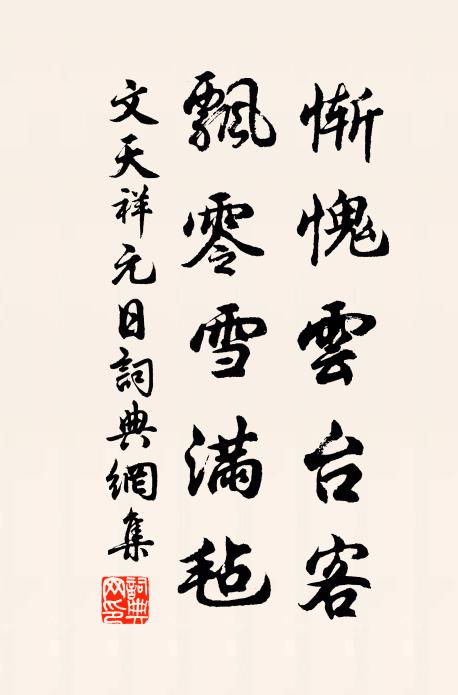 慚愧雲台客
飄零雪滿毡
文天祥元日詞典網集
詞典网印